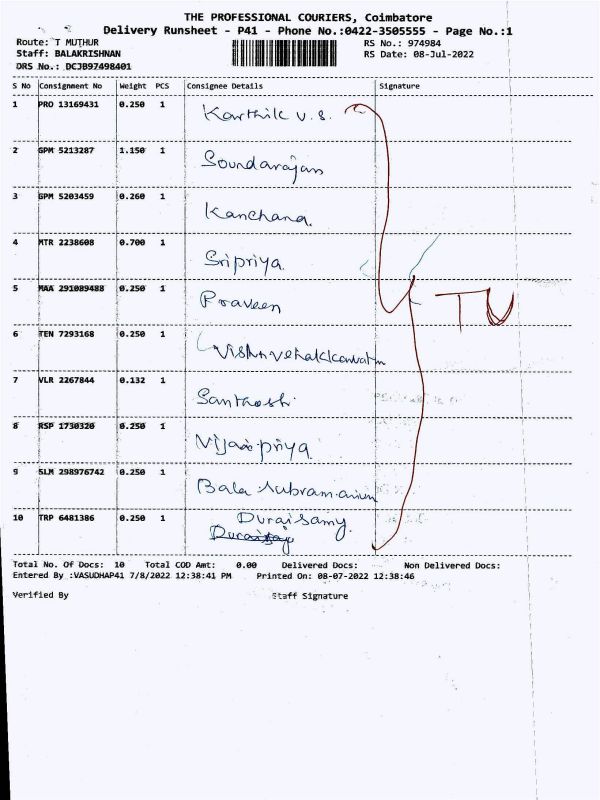 THE PROFESSIONAL COURIERS, Coimbatore
Delivery Runsheet - P41 - Phone No.:0422-3505555 - Page No.:1
Route: T MUTHUR RS No.: 974984
Staff: BALAKRISHNAN RS Date: 08-Jul-2022
DRS No.: DCJB97498401
S No Consignment No Weight PCS Consignee Details Signature
1 PRO 13169431 0.250 1 Karthik v.s.
2 GPM 5213287 1.150 1 Soundarajan
3 GPM 5203459 0.260 1 Kanchana.
4 MTR 2238608 0.700 1 Sripriya.
5 MAA 291089488 0.250 1 Praveen
TU
6 TEN 7293168 0.250 1
7 VLR 2267844 0.132 1 Santhosh.
8 RSP 1730320 0.250 1 Vijaipriya
9 SLM 298976742 0.250 1 Bala subramanium
10 TRP 6481386 0.250 1 Duraisamy
Total No. Of Docs: 10 Total COD Amt: 0.00 Delivered Docs: Non Delivered Docs:
Entered By :VASUDHAP41 7/8/2022 12:38:41 PM Printed On: 08-07-2022 12:38:46
Verified By Staff Signature